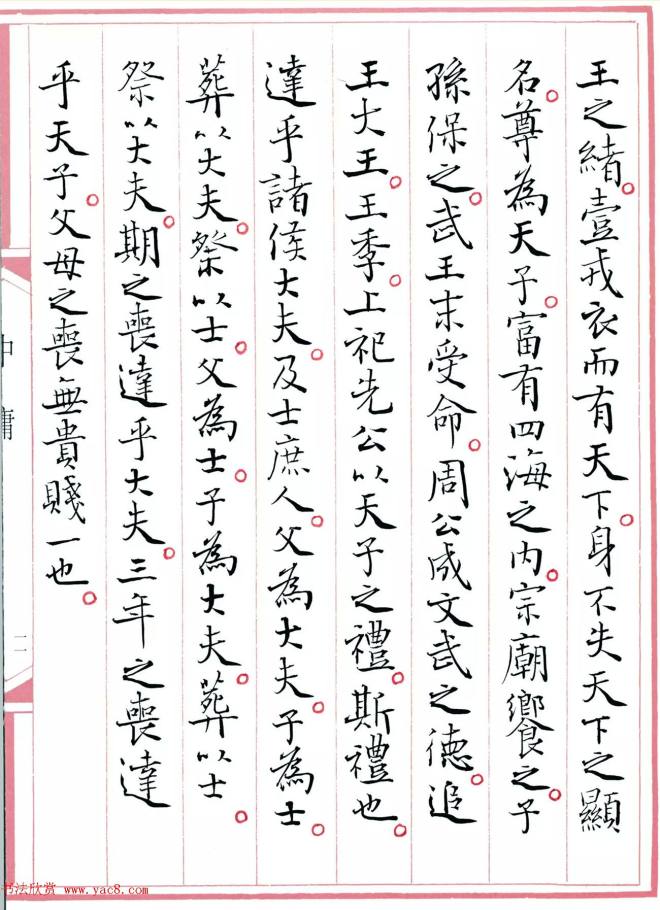 王之緒。壹戎衣而有天下。身不失天下之顯
名。尊為天子。富有四海之內。宗廟饗之。子
孫保之。武王末受命。周公成文武之德。追
王大王。王季。上祀先公以天子之禮。斯禮也。
達乎諸侯大夫。及士庶人。父為大夫。子為士。
葬以大夫。祭以士。父為士。子為大夫。葬以士。
祭以大夫。期之喪達乎大夫。三年之喪達
乎天子。父母之喪無貴賤一也。
中庸
二
书法欣赏 www.yac8.com